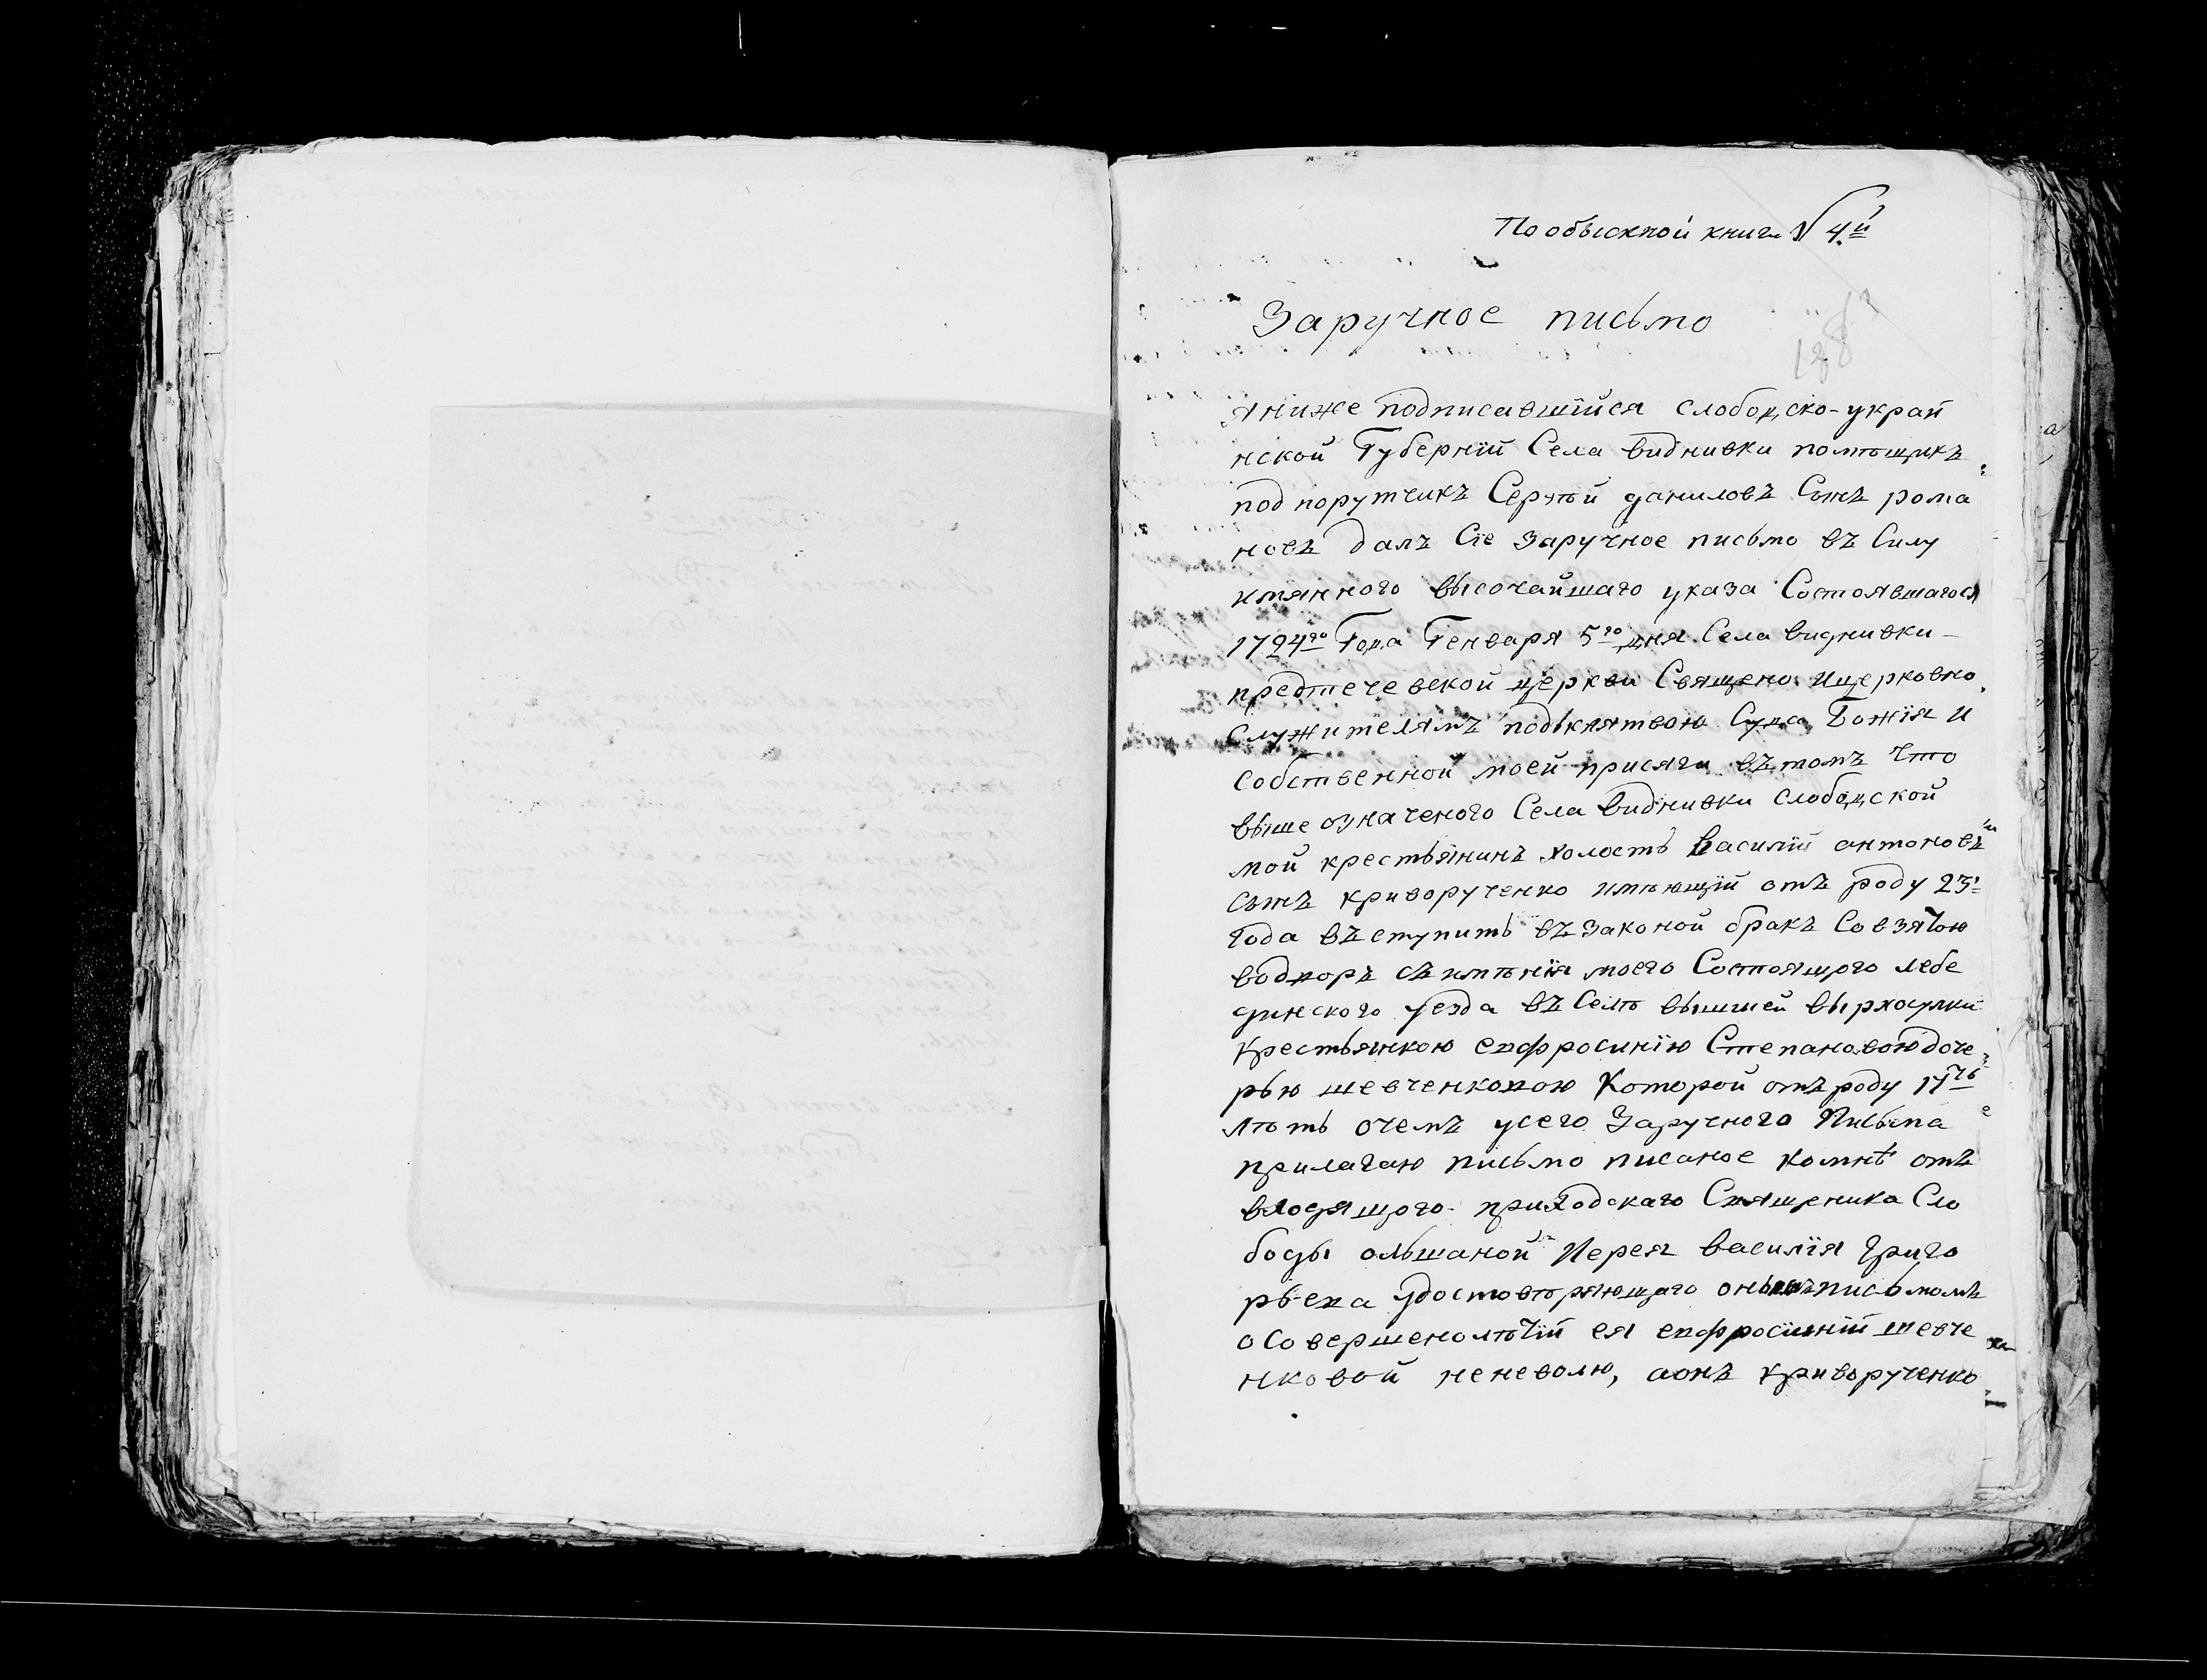 По обыскной книге № 4й
Заручное письмо
188
я ниже подписавшійся слободско-украй
нской Губерніи Села виднивки помѣщикъ
под порутчикъ Сергѣй даниловъ Сынъ рома
новъ далъ Сіе заручное письмо въ Силу
имянного высочайшаго указа Состоявшагося
1724го Года Генваря 5го дня Села виднивки
предтечевской церкви Священо. Ицерковно
Служителямъ подъклятвою Суда Божія и
собственной моей присяги вътомъ что
выше означеного Села виднивки слободской
мой крестьянинъ холостъ василій антоновъ
сынъ криворученко имѣющій отъ роду 23
года въступить възаконой бракъ Совзятою
водворъ съимѣнія моего Состоящого лебе
динского уезда въ Селѣ вышшей вырхосулки
крестьянкою евфросиніею Степановою доче
рью шевченковою Которой отъ роду 17ть
лѣтъ очемъ усего Заручного Письма
прилагаю письмо писаное комнѣ отъ
входящого приходскаго Священика Сло
боды ольшаной Иерея василія григо
рьева удостовѣряющаго онымъ письмомъ
о Совершенолѣтіи ея евфросиніи шевче
нковой неневолю, аонъ криворученко